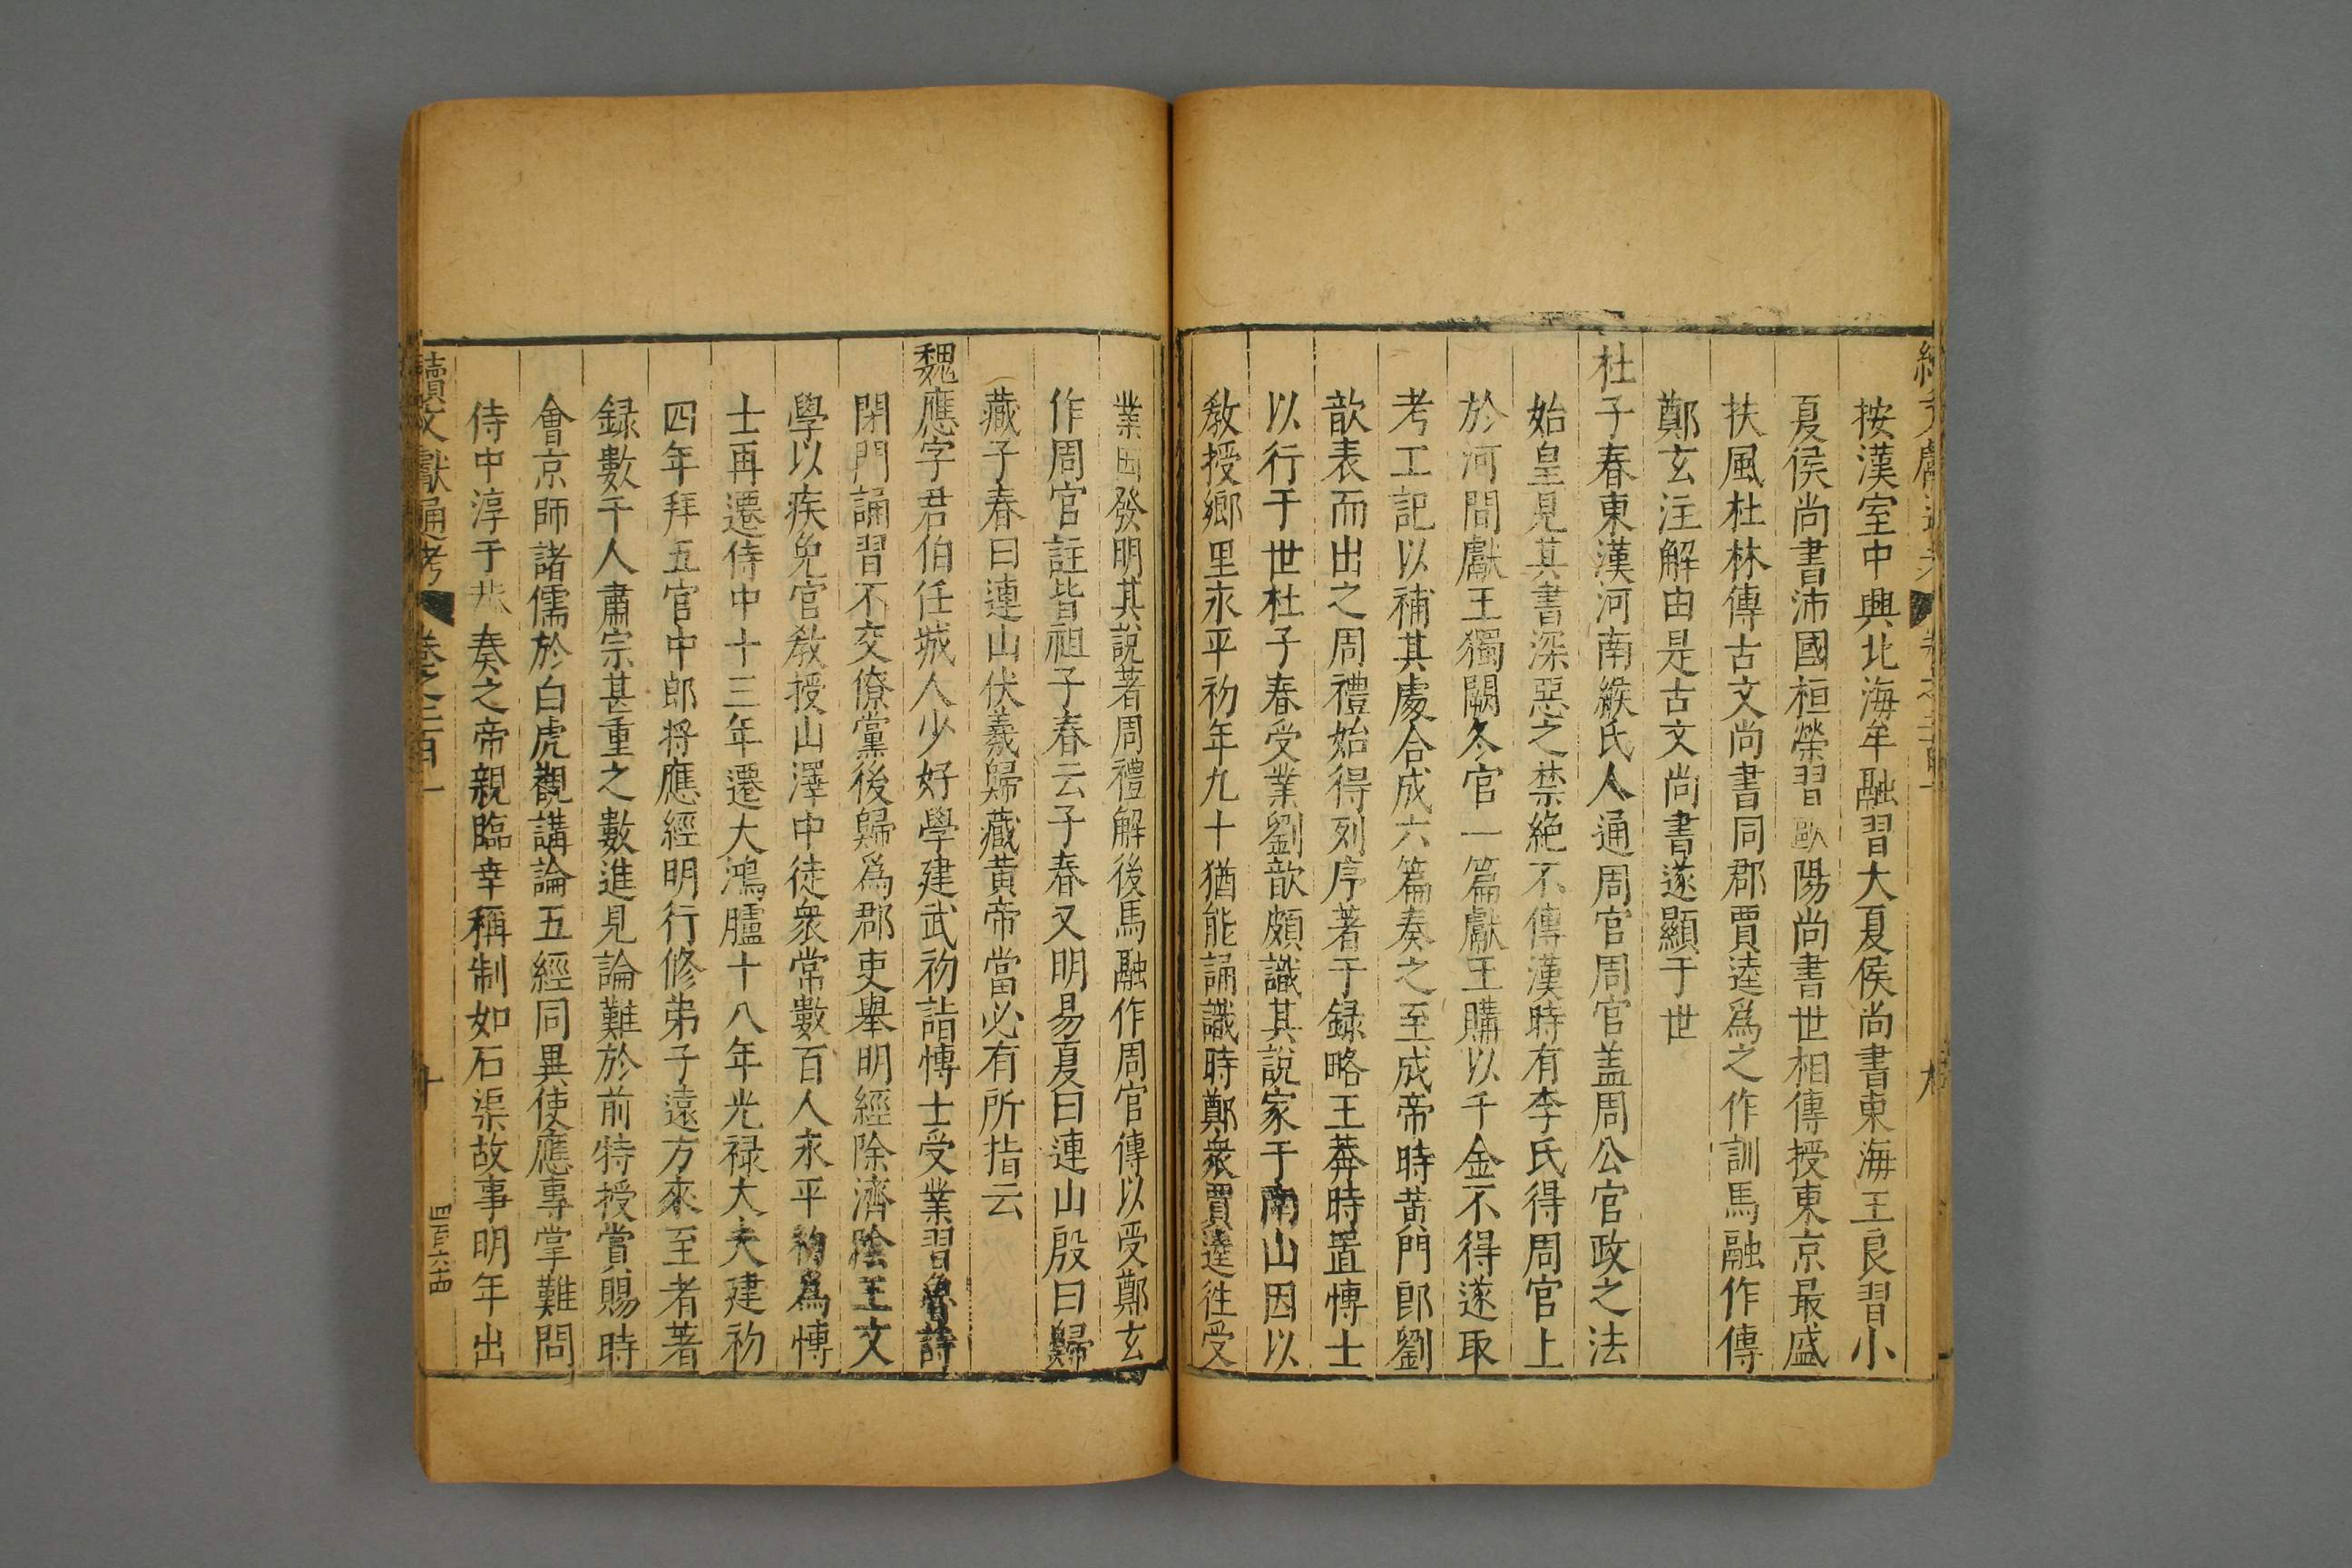 按漢室中興北海牟融習大夏侯尚書東海王良習小
夏侯尚書沛國桓榮習歐陽尚書世相傳授東京最盛
扶風杜林傳古文尚書同郡賈逵爲之作訓馬融作傳
鄭玄注解由是古文尚書遂顯于世
杜子春東漢河南緱氏人通周官周官盖周公官政之法
始皇見其書深惡之禁絶不傳漢時有李氏得周官上
於河間獻王獨闕冬官一篇獻王購以千金不得遂取
考工記以補其處合成六篇奏之至成帝時黄門郎劉
歆表而出之周禮始得列序著于録略王莽時置博士
以行于世杜子春受業劉歆頗識其說家于南山因以
敎授鄉里永平初年九十猶能誦識時鄭衆賈逵往受
業因發明其説著周禮解後馬融作周官傳以受鄭玄
作周官註皆祖子春云子春又明易夏曰連山殷曰歸
藏子春曰連山伏羲歸藏黄帝當必有所指云
魏應字君伯任城人少好學建武初詣博士受業習魯詩
閉門誦習不交僚黨後歸爲郡吏舉明經除濟陰王文
學以疾免官敎授山澤中徒衆常數百人永平初爲博
士再遷侍中十三年遷大鴻臚十八年光禄大夫建初
四年拜五官中郎将應經明行修弟子遠方來至者著
録數千人肅宗甚重之數進見論難於前特授賞賜時
會京師諸儒於白虎觀講論五經同異使應專掌難問
侍中淳于恭奏之帝親臨幸稱制如石渠故事明年出
續文獻通考 卷之二百一 十 四百六十四